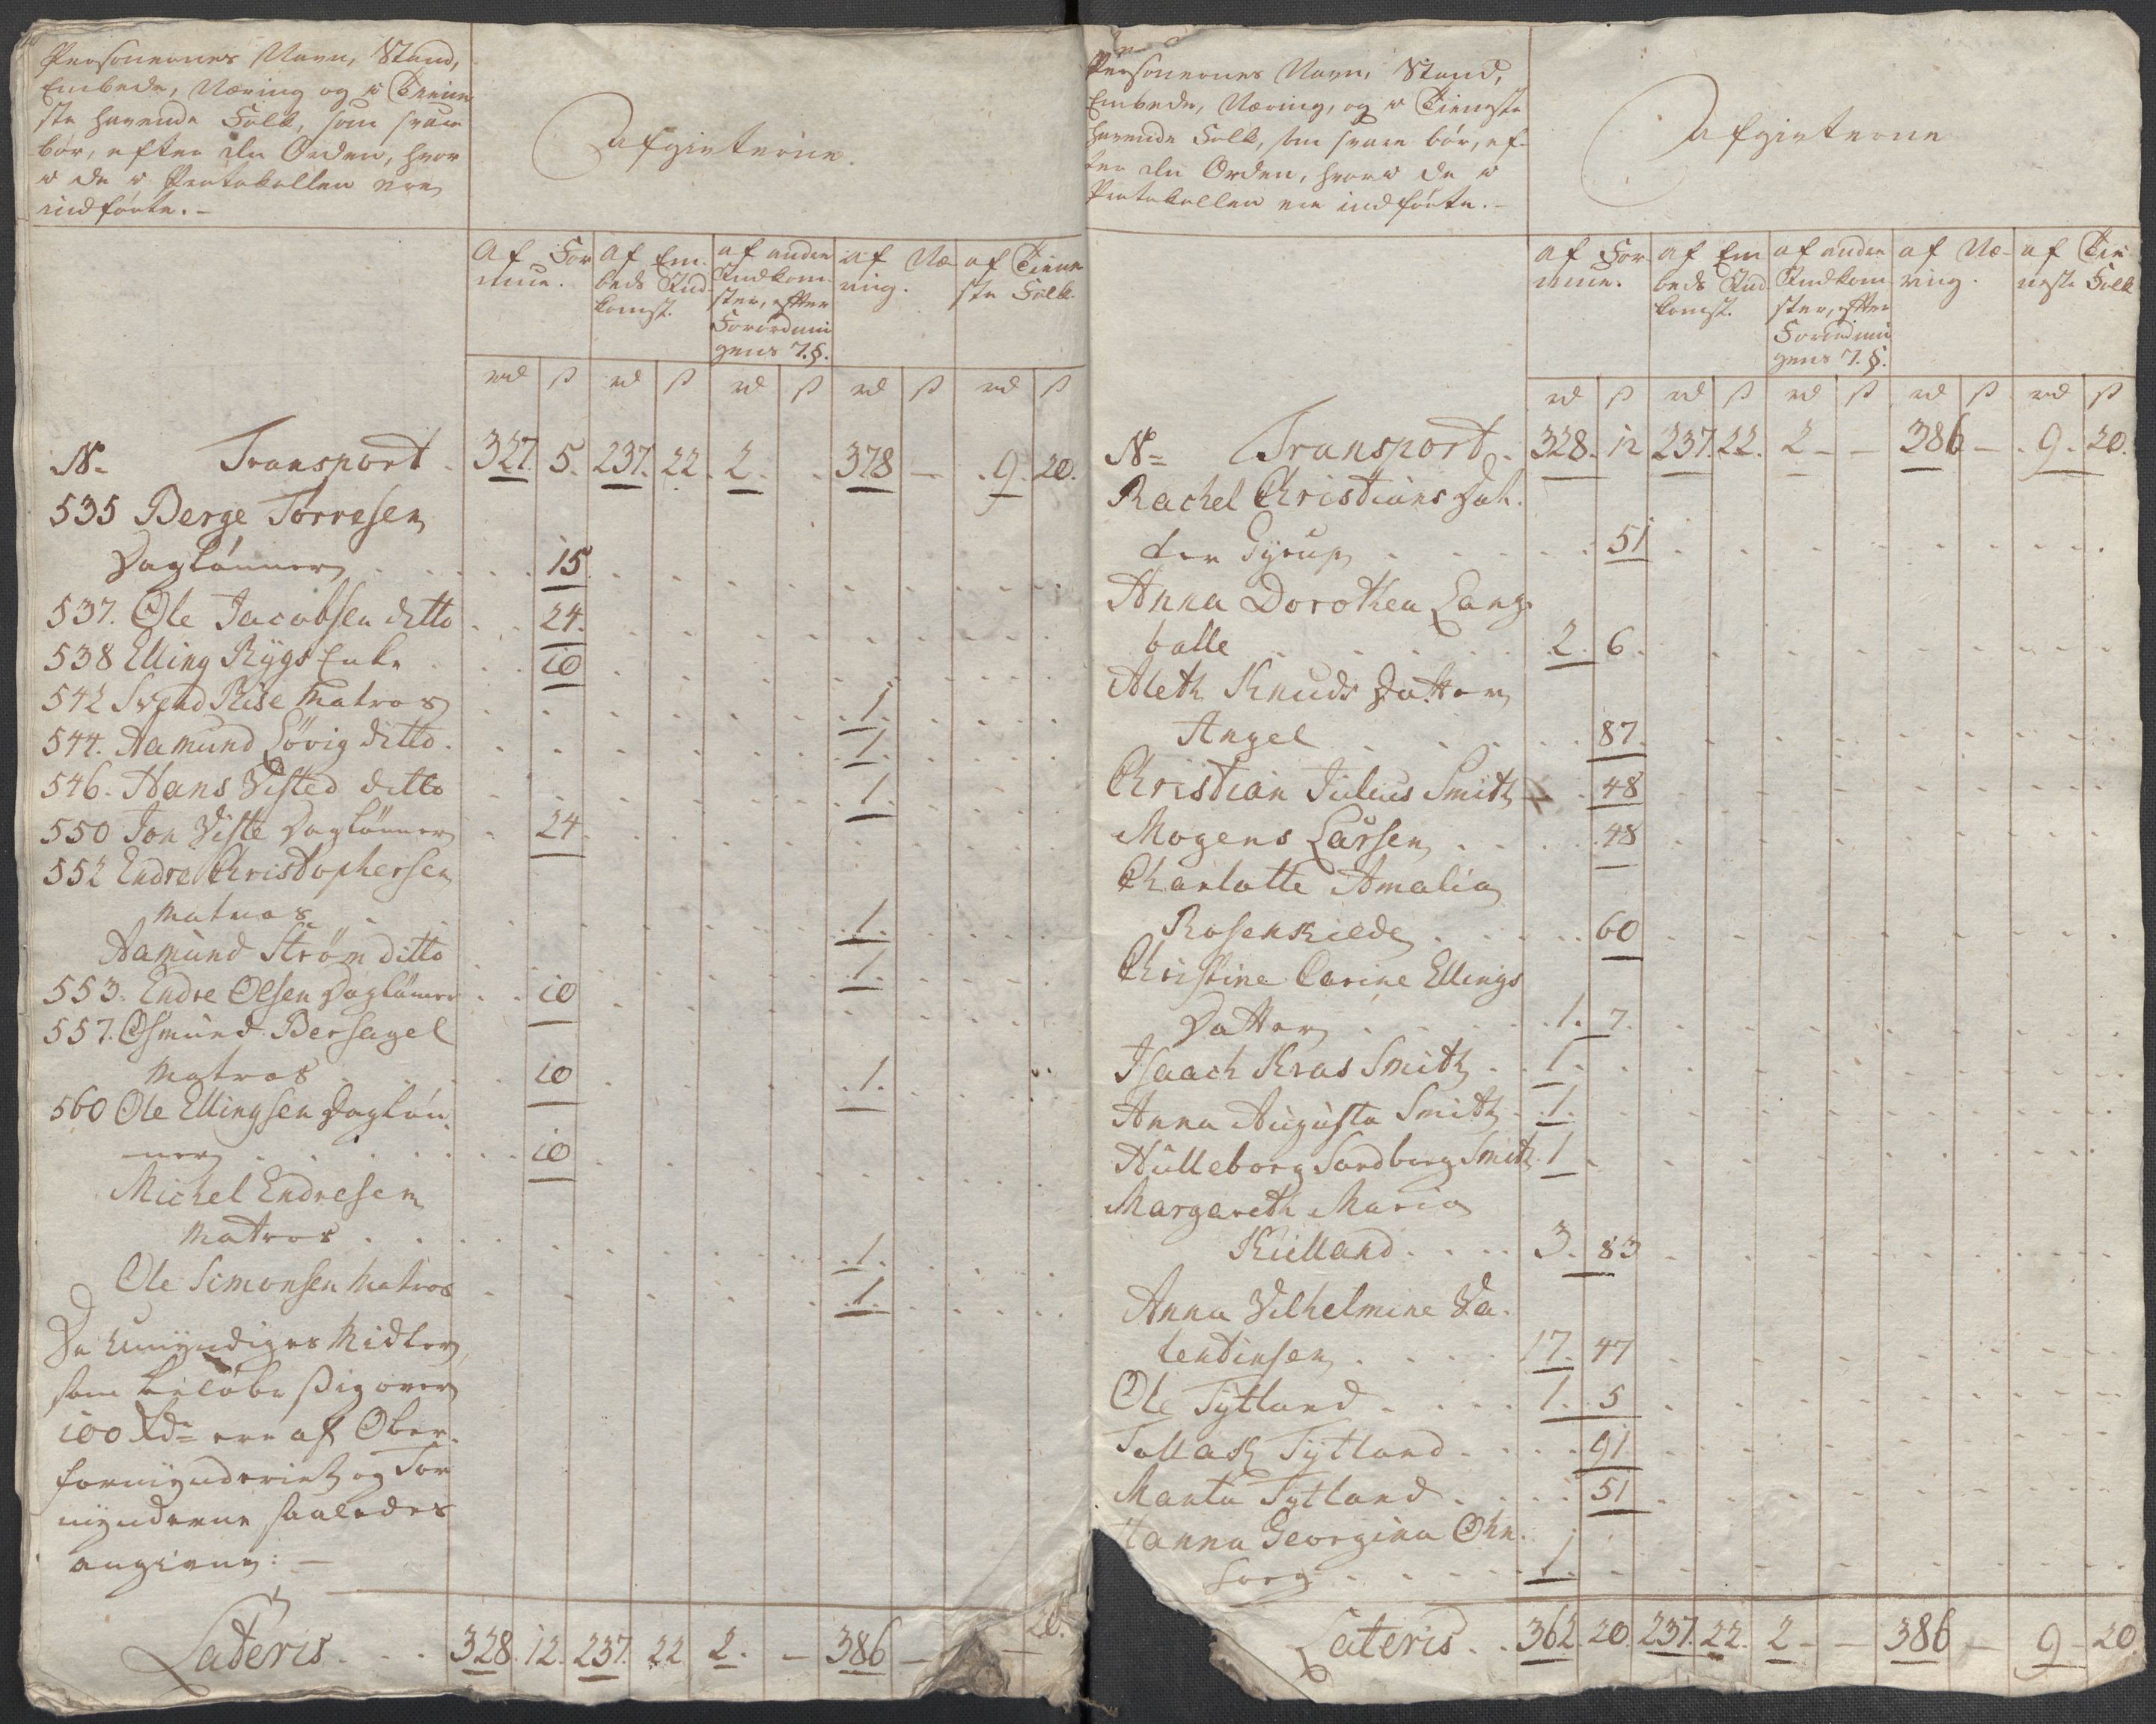 Personernes Navn, Stand,
Embede, Næring og i Tiene
ste havende Folk, som svare
bør, efter den Orden, hvor
i de i Protokollen ere
indførte. -
Afgivterne.
Af For
mue.
Af Em-
beds Ind
komst.
af anden
Indkom-
ster, efter
Forordnin
gens 7. §.
af Næ
ring.
af Tiene
ste Folk.
rd ß rd ß rd ß rd ß rd ß
No Transport . 327. 5. 237. 22. 2. . 378 - . 9. 20.
535 Berge Torresen
Daglønner . . . 15
537. Ole Jacobsen ditto . . 24.
538 Elling Rygs Enke . . 10
542 Svend Riise Matros . 1.
544. Aamund Løvig ditto . 1.
546. Hans Visted ditto . 1.
550 Jon Viste Daglønner . 24
552 Endre Christophersen
Matros . 1.
Aamund Strøm ditto . 1.
553. Endre Olsen Daglønner . . 10
557. Osmund Bersagel
Matros . . 10 . 1.
560 Ole Ellingsen Dagløn-
ner . . . 10
Michel Endresen
Matros . . . 1.
Ole Simonsen Matros . 1.
De Umyndiges Midler,
som beløbe sig over
100 Rdr ere af Ober-
formynderiet og For
mynderne saaledes
angivne: -
Lateris . . . 328. 12. 237. 22 2. - 386 - 20.
Personernes Navn, Stand,
Embede, Næring, og i Tieneste
havende Folk, som svare bør, ef-
ter den Orden, hvori de i
Protokollen ere indførte. -
Afgivterne
af For-
mue.
af Em
beds Ind
komst.
af anden
Indkom-
ster, efter
Forordnin
gens 7. §.
af Næ-
ring.
af Tie-
neste Folk
rd ß rd ß rd ß rd ß rd ß
No Transport . 328. 12 237. 22. 2 - - 386 - . 9. 20.
Rachel Christians Dat-
ter Gyrup . . . 51
Anna Dorothea Lang-
balle . . . 2. 6.
Aleth Knuds Datter
Angel . . . 87.
Christian Julius Smith . 48
Mogens Larsen . . . 48
Charlotte Amalia
Rosenkilde . . . 60
Christine Carine Ellings
Datter . . . 1. 7.
Isaach Kras Smith . . 1.
Anna Augusta Smith . 1.
Hulleborg Sandborg Smith 1
Margareth Maria
Kielland . . . 3. 83
Anna Vilhelmine Va-
lentinsen . . . 17. 47
Ole Tytland . . . 1. 5
Tollak Tytland . . . 91
Manta Tytland . . . 51
Hanna Georgina Ohn-
sorg . . . 1.
Lateris . . 362. 20. 237. 22. 2 - - 386 - 9 - 20.